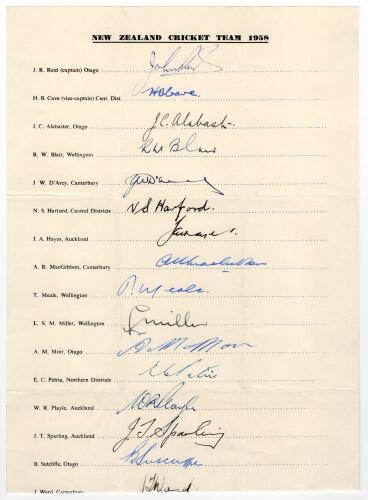 NEW ZEALAND CRICKET TEAM 1958
J. R. Reid (captain) Otago John Reid
H. B. Cave (vice-captain) Cent. Dist. HBCave.
J. C. Alabaster, Otago J.C. Alabaster
R. W. Blair, Wellington RW Blair
J W. D'Arcy, Canterbury JWD'Arcy
N. S. Harford, Central Districts N S Harford.
J. A. Hayes, Auckland
A. R. MacGibbon, Canterbury
T. Meale, Wellington T. Meale.
L. S. M. Miller, Wellington Miller
A. M. Moir, Otago A M Moir
E. C. Petrie, Northern Districts E C Petrie
W. R. Playle, Auckland WR Playle
J. T. Sparling, Auckland J. T. Sparling
B. Sutcliffe, Otago B Sutcliffe
J. Ward, Canterbury J Ward